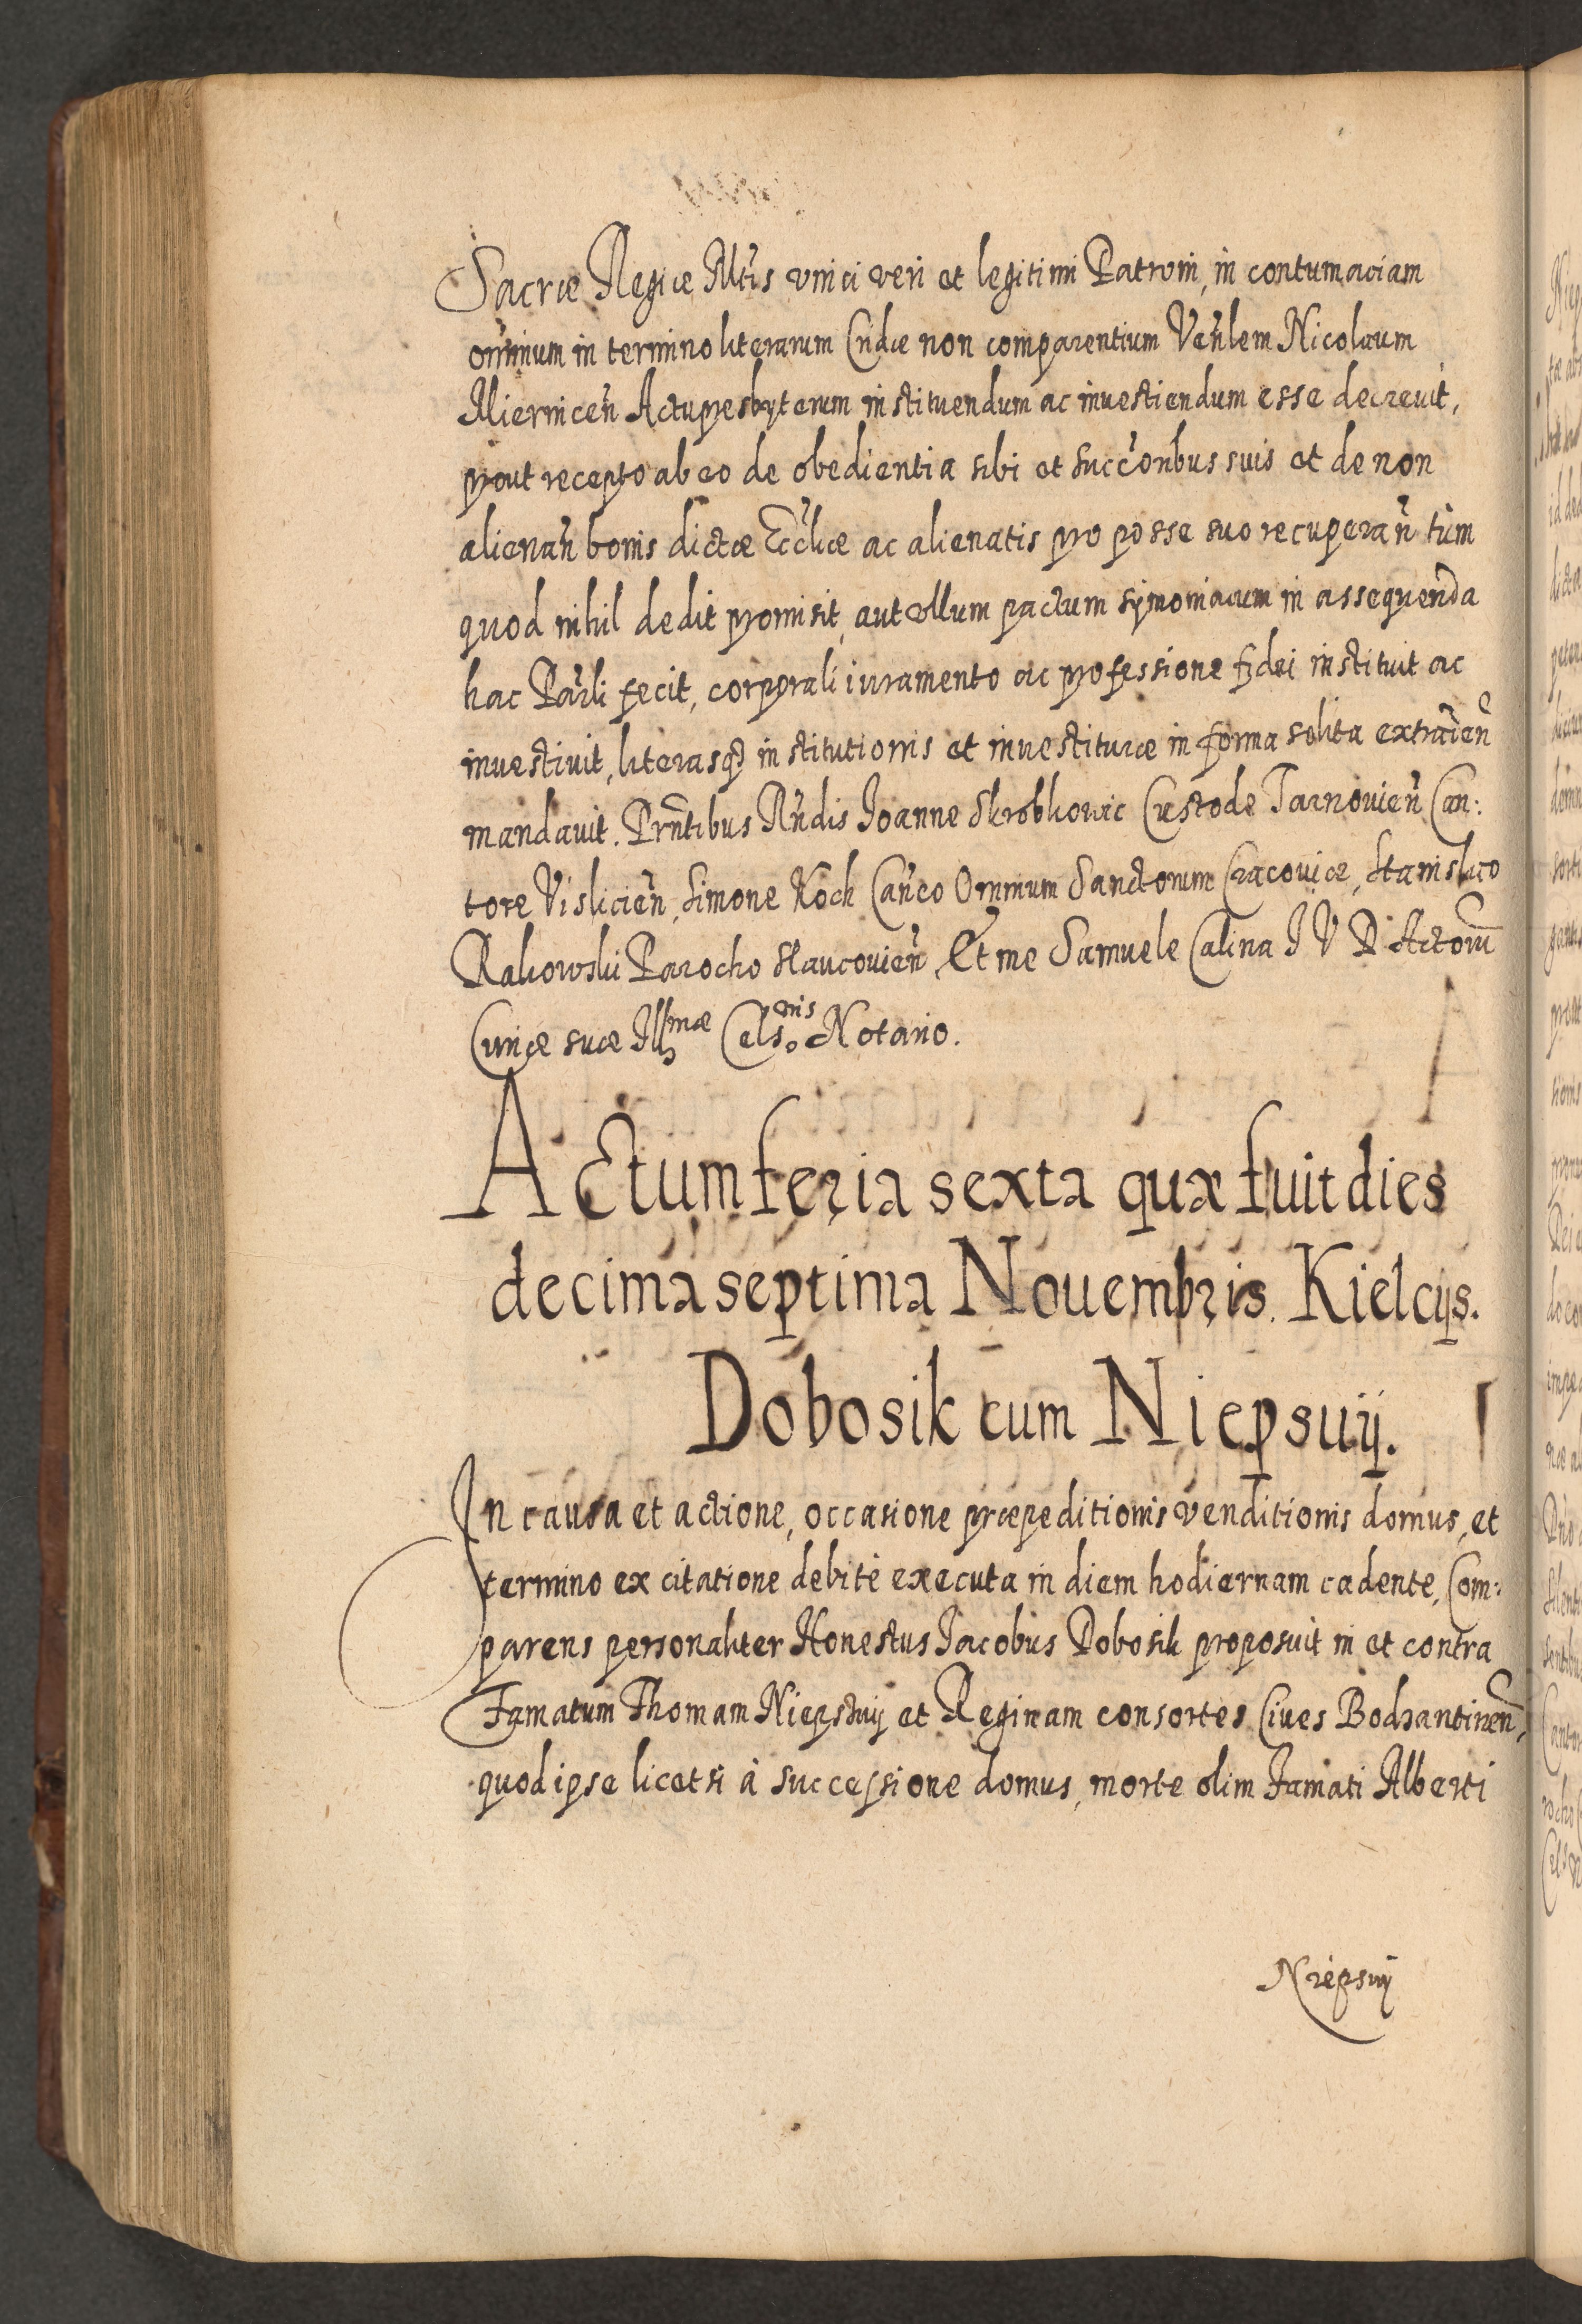 Sacræ Regiæ Mtis vnici veri et legitimi Patroni, in contumaciam
omnium in termino literarum Cridæ non comparentium Venlem Nicolaum
Miernicen Actupresbyterum instituendum ac inuestiendum esse decreuit,
prout recepto ab eo de obedientia sibi et succonbus suis et de non
alienan bonis dictæ Eccliæ ac alienatis pro posse suo recuperan tum
quod nihil dedit promisit, aut vllum pactum symoniacum in assequenda
hac Parli fecit, corporali iuramento ac professione fidei instituit ac
inuestiuit, literasq institutionis et inuestituræ in forma solita extraden
mandauit. Prntibus Rndis Joanne Skrobkowic Custode Tarnouien Can:
tore Vislicien, Simone Koch Canco Omnium Sanctorum Cracouiæ, Stanislao
Rakowski Parocho Slaucouien, Et me Samuele Calina J V D Actorum
Curiæ suæ Illmæ Cels.onis Notario.
Actum feria sexta quæ fuit dies
decima septima Nouembris. Kielcijs.
Dobosik cum Niepsuij.
In causa et actione, occasione præpeditionis venditionis domus, et
termino ex citatione debite executa in diem hodiernam cadente, Com:
parens personaliter Honestus Jacobus Dobosik proposuit in et contra
Famatum Thomam Niepsuij et Reginam consortes Ciues Bodzantinen,
quod ipse licet si à successione domus, morte olim Famati Alberti
Niepsuij